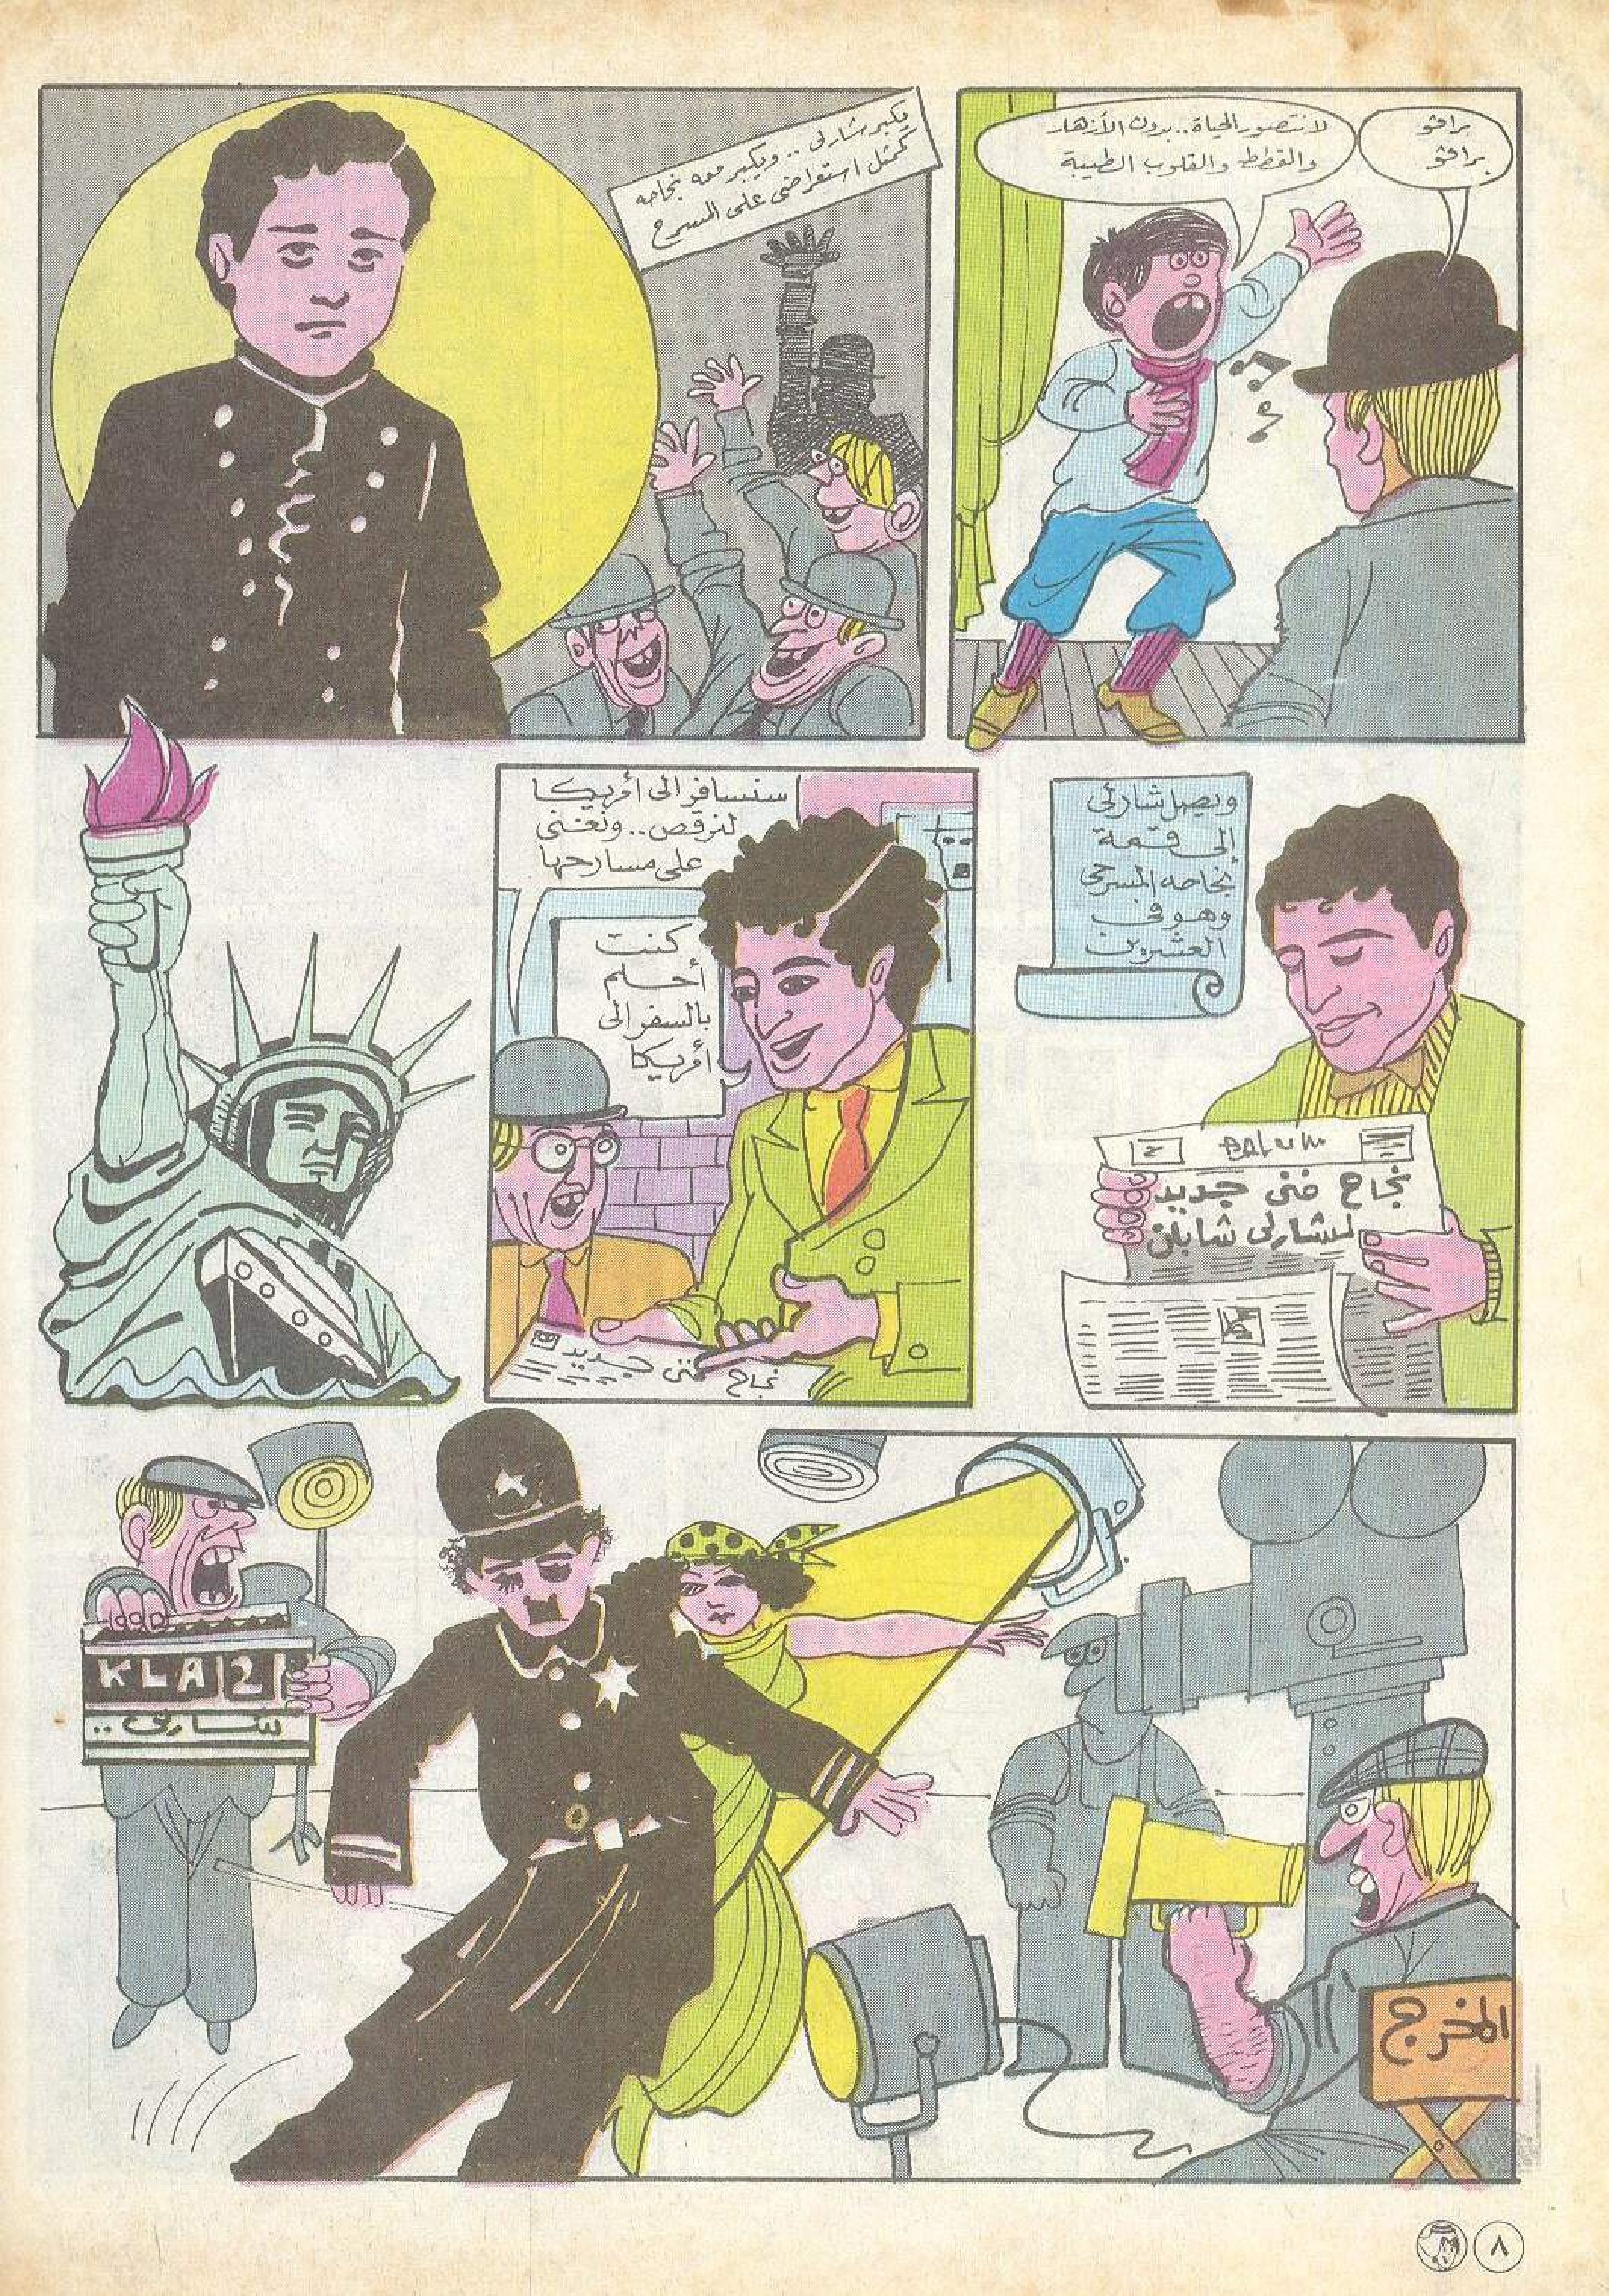 برافو
برافو
لا نتصور الحياة.. بدون الأزهار
والقطط والقلوب الطيبة
يكبر شارلى.. ويكبر معه نجاحه
كممثل استعراضى على المسرح
ويصل شارلى
إلى قمة
نجاحه المسرحى
وهو فى
العشرين
نجاح فنى جديد
لشارلى شابلن
سنسافر الى أمريكا
لنرقص.. ونغنى
على مسارحها
كنت
أحلم
بالسفر الى
أمريكا
نجاح فنى جديد
KLA 2
شارلى..
المخرج
٨